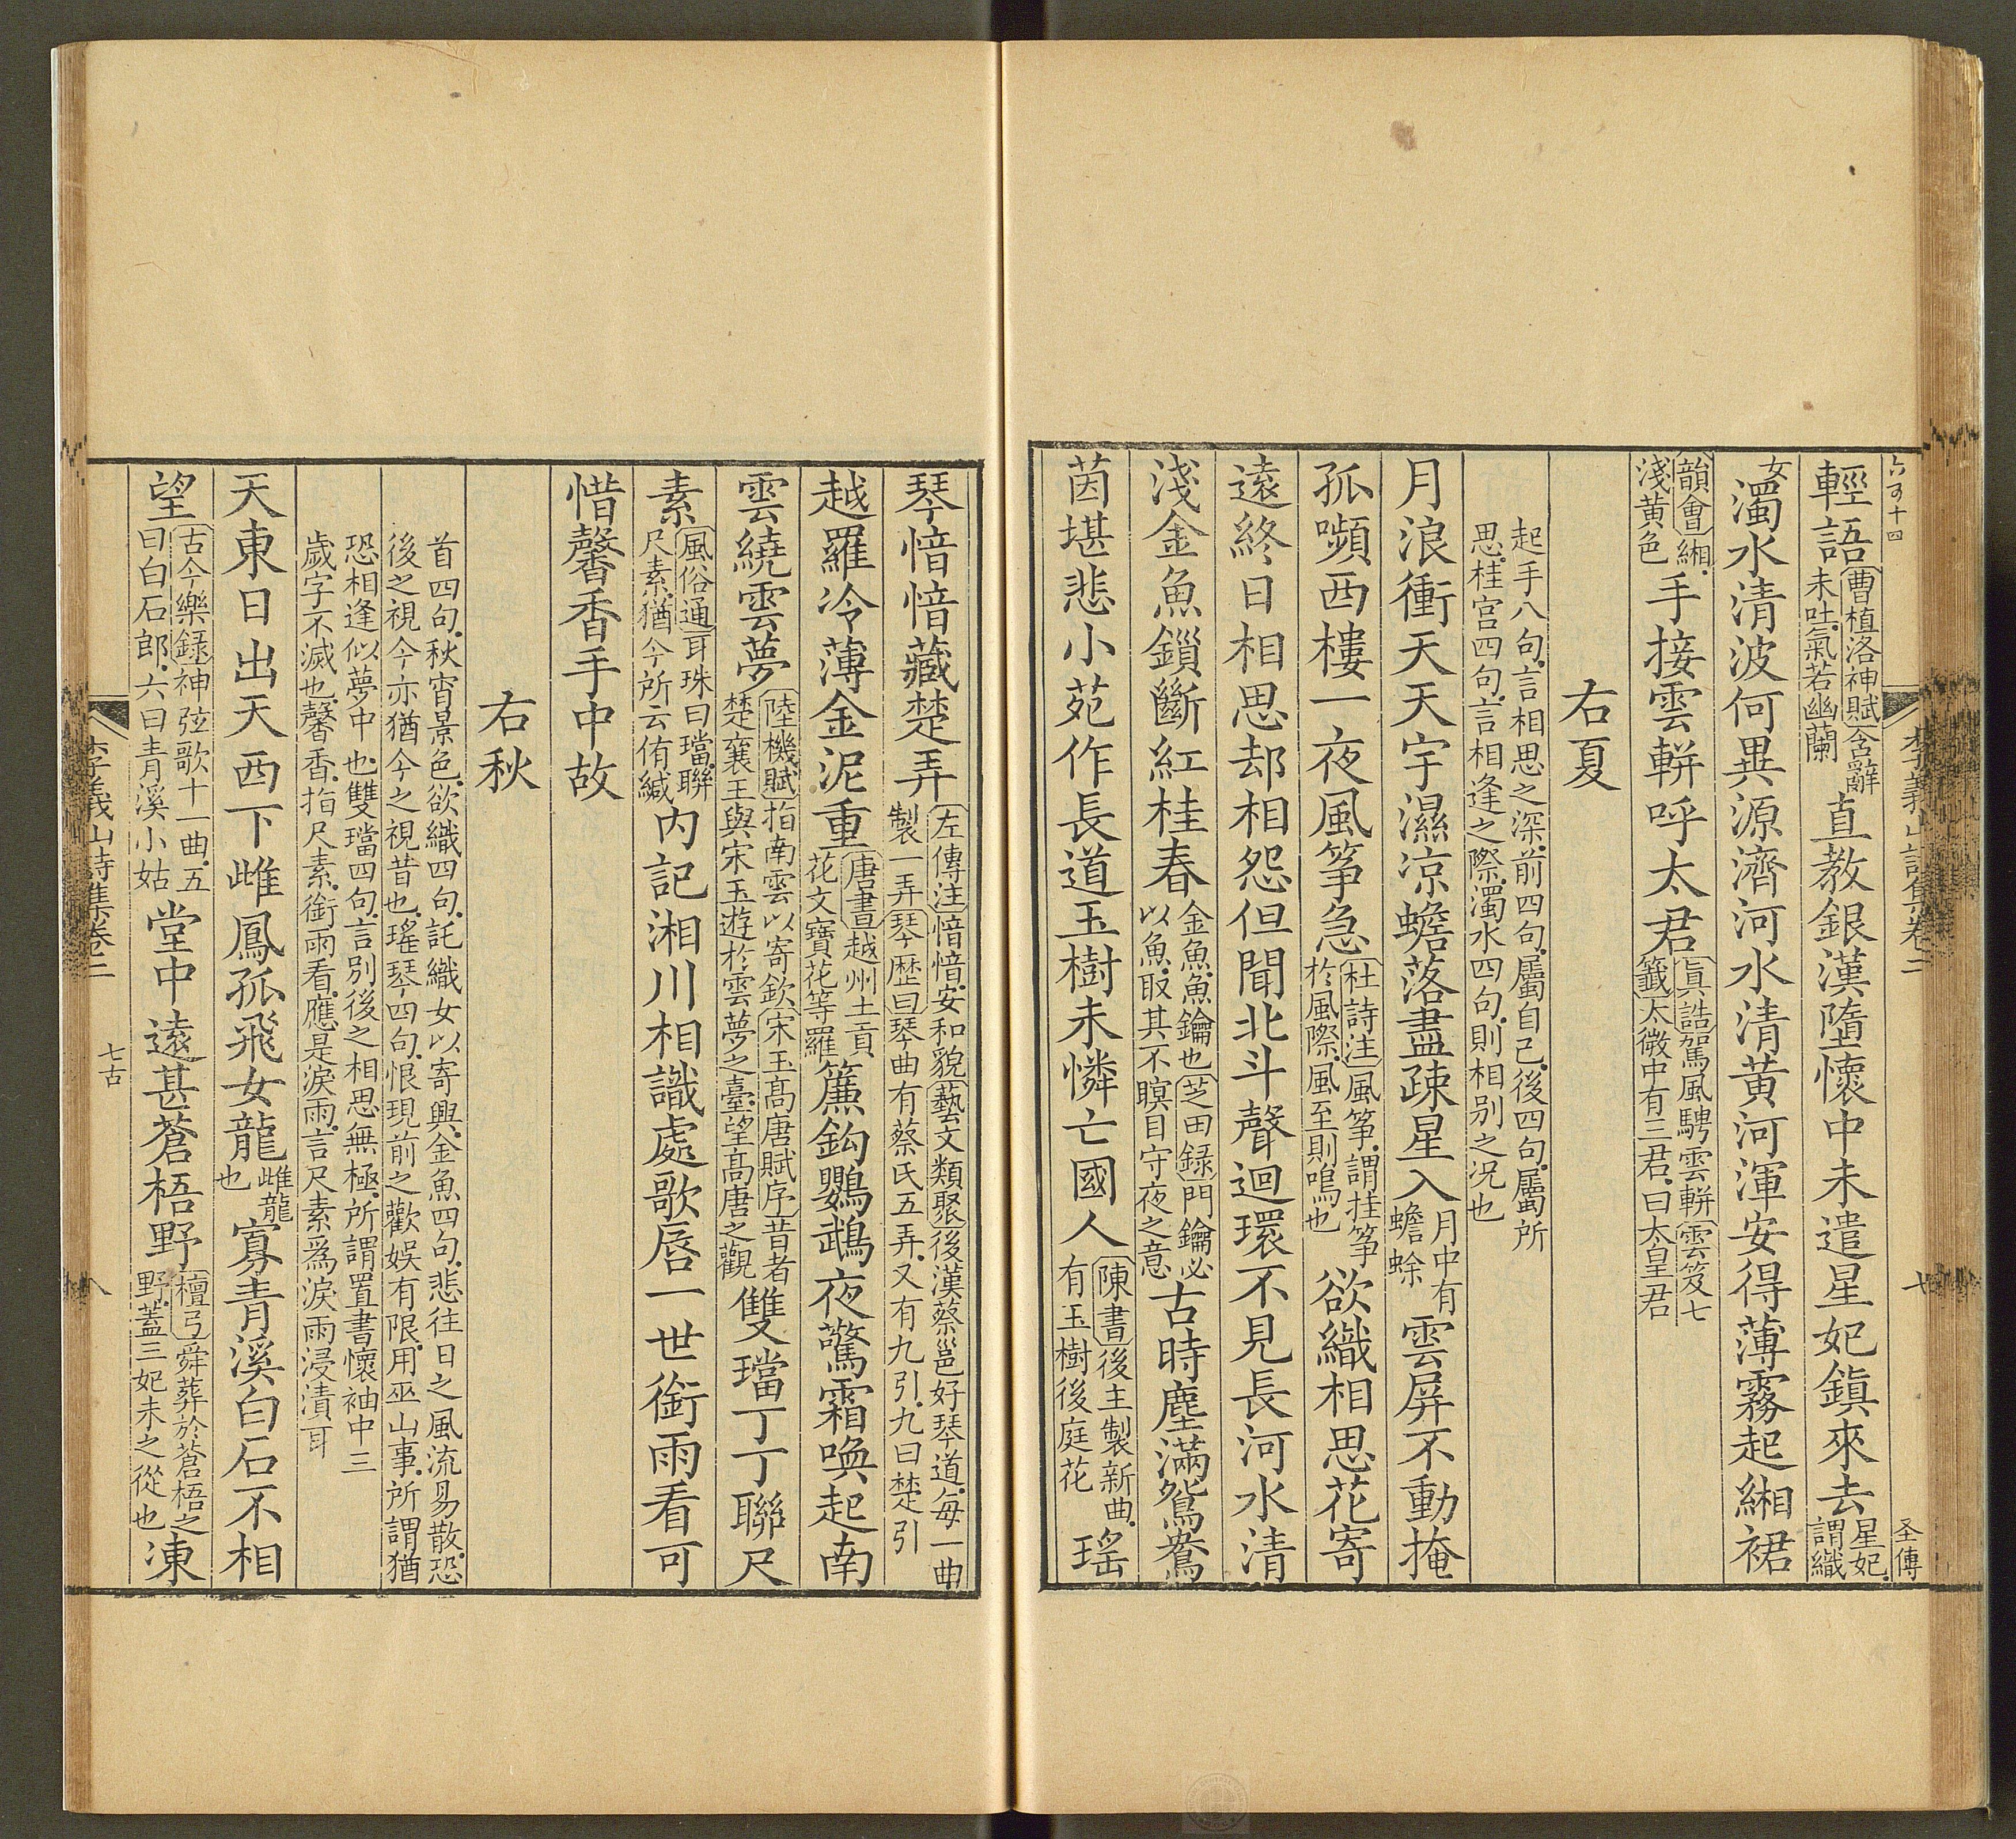 輕語曹植洛神賦含辭未吐氣若幽蘭直教銀漢墮懷中未遣星妃鎮來去星妃謂織
女濁水清波何異源濟河水清黃河渾安得薄霧起緗裙
韻會緗淺黃色手接雲軿呼太君眞誥駕風騁雲軿雲笈七籤太微中有三君曰太皇君
右夏
起手八句言相思之深前四句屬自己後四句屬所
思桂宮四句言相逢之際濁水四句則相別之况也
月浪衝天天宇濕涼蟾落盡疎星入月中有蟾蜍雲屏不動掩
孤嚬西樓一夜風筝急杜詩注風筝謂挂筝於風際風至則鳴也欲織相思花寄
遠終日相思却相怨但聞北斗聲迴環不見長河水清
淺金魚鎻斷紅桂春金魚魚鑰也芝田錄門鑰必以魚取其不瞑目守夜之意古時塵滿鴛鴦
茵堪悲小苑作長道玉樹未憐亡國人陳書後主製新曲有玉樹後庭花瑤
琴愔愔藏楚弄左傳注愔愔安和貌藝文類聚後漢蔡邕好琴道每一曲製一弄琴歷曰琴曲有蔡氏五弄又有九引九曰楚引
越羅冷薄金泥重唐書越州土貢花文寶花等羅簾鈎鸚鵡夜驚霜喚起南
雲繞雲夢陸機賦指南雲以寄欽宋玉高唐賦序昔者楚襄王與宋玉遊於雲夢之臺望高唐之觀雙璫丁丁聯尺
素風俗通耳珠曰璫聯尺素猶今所云侑緘内記湘川相識處歌唇一世銜雨看可
惜馨香手中故
右秋
首四句秋宵景色欲織四句託織女以寄興金魚四句悲往日之風流易散恐
後之視今亦猶今之視昔也瑤琴四句恨現前之歡娱有限用巫山事所謂猶
恐相逢似夢中也雙璫四句言別後之相思無極所謂置書懷袖中三
歲字不滅也馨香指尺素銜雨看應是淚雨言尺素爲淚雨浸漬耳
天東日出天西下雌鳳孤飛女龍雌龍也寡青溪白石不相
望古今樂錄神弦歌十一曲五曰白石郎六曰青溪小姑堂中遠甚蒼梧野檀弓舜葬於蒼梧之野蓋三妃未之從也凍
李義山詩集卷二
七古
八